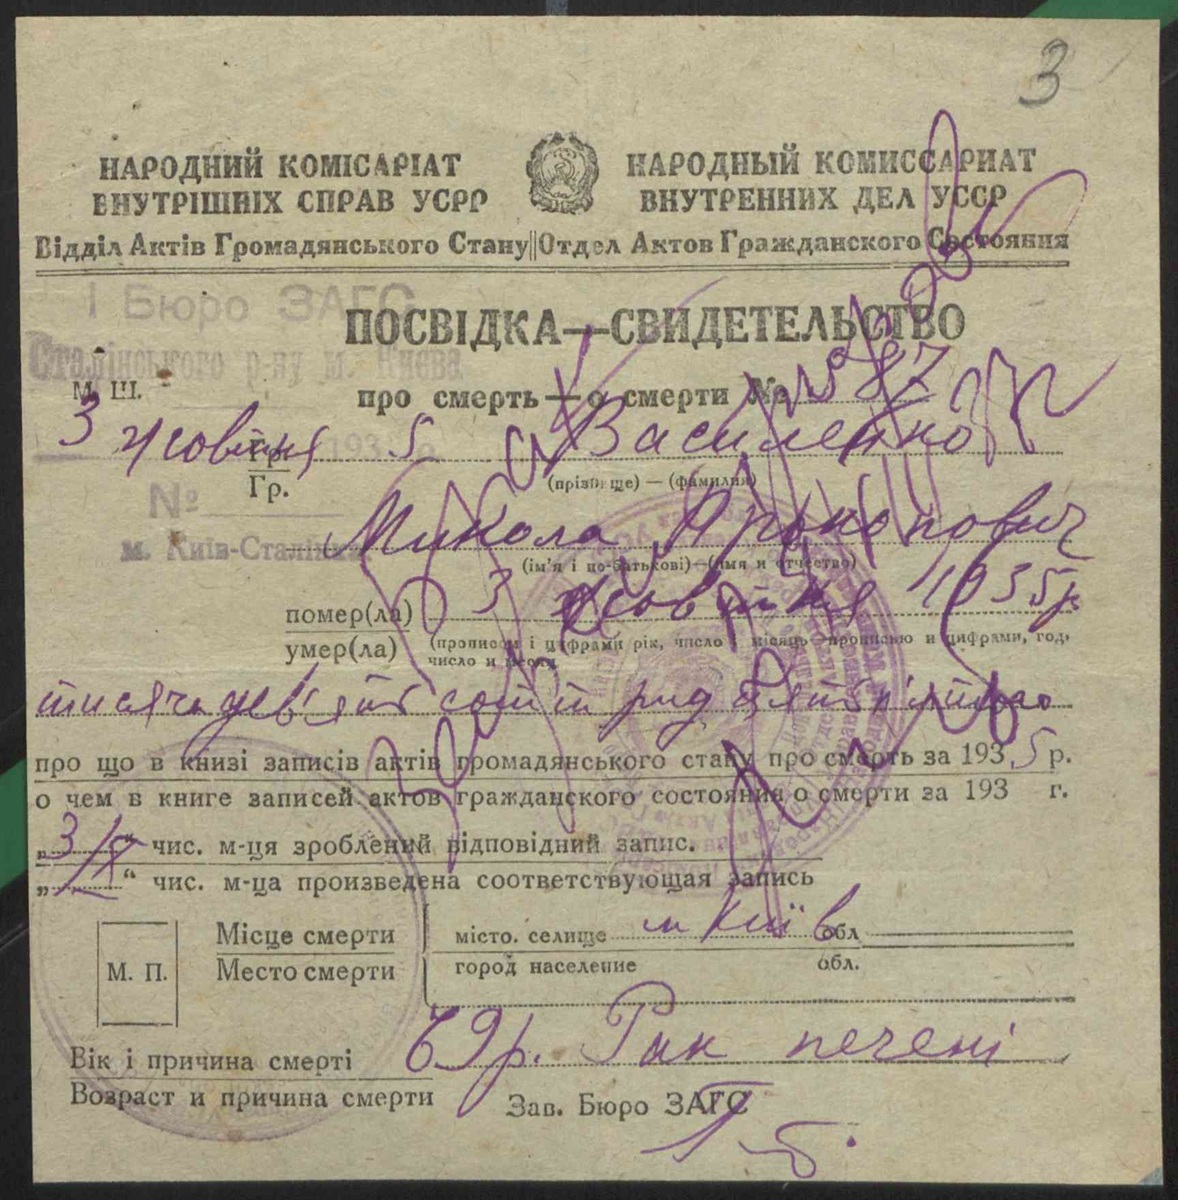 3
НАРОДНИЙ КОМІСАРІАТ
ВНУТРІШНІХ СПРАВ УСРР
Відділ Актів Громадянського Стану
НАРОДНЫЙ КОМИССАРИАТ
ВНУТРЕННИХ ДЕЛ УССР
Отдел Актов Гражданского Состояния
І Бюро ЗАГС
Сталінського р-ну м. Києва
М. Ш.
ПОСВІДКА—СВИДЕТЕЛЬСТВО
про смерть—о смерти № 87
3 жовтня 1935 р.
Гр. Василенко
(прізвище) — (фамилия)
№
м. Київ-Сталінка
Микола Прокопович
(ім'я і по-батькові)—(имя и отчество)
помер(ла) 3 жовтня 1935 р
умер(ла) (прописом і цифрами рік, число і місяць—прописью и цифрами, год,
число и месяц
тисяча дев'ятсот
про що в книзі записів актів громадянського стану про смерть за 1935 р.
о чем в книге записей актов гражданского состояния о смерти за 193 г.
„3/X“ чис. м-ця зроблений відповідний запис.
„ “ чис. м-ца произведена соответствующая запись
М. П.
Місце смерти
Место смерти
місто. селище м Київ обл
город население обл.
Вік і причина смерті 69 р. Рак печені
Возраст и причина смерти
Зав. Бюро ЗАГС